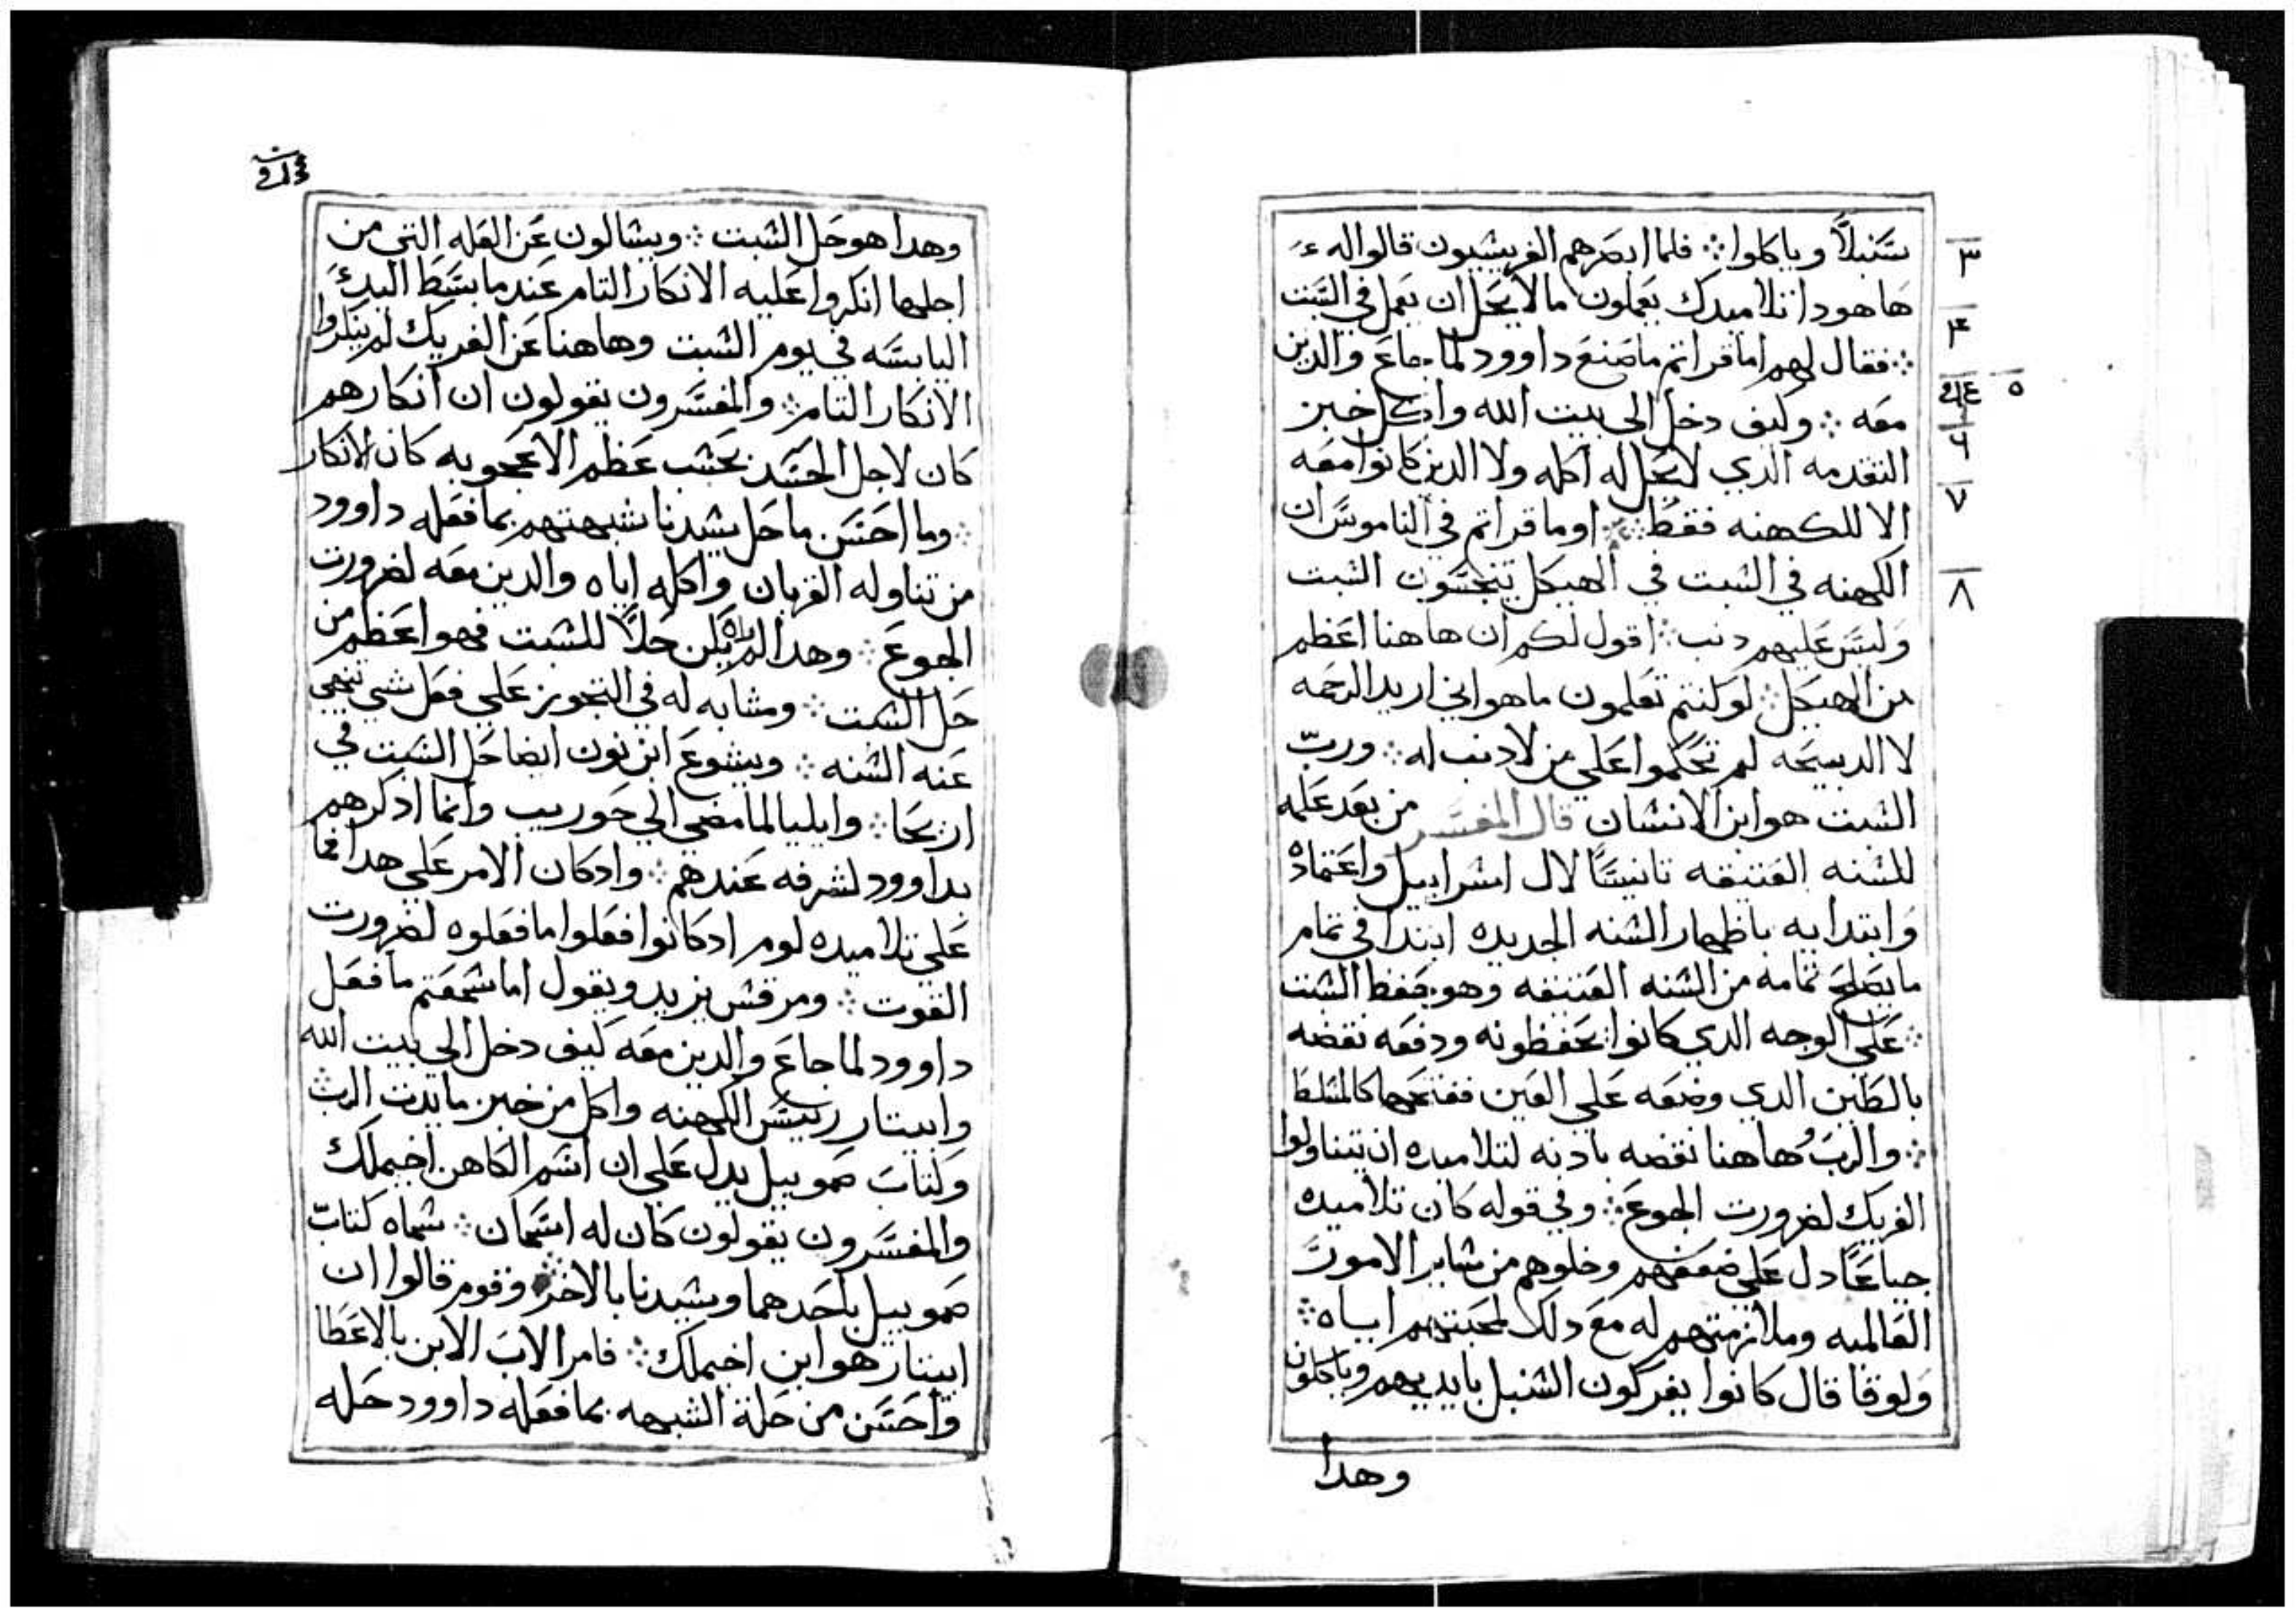 سنبلاً وياكلوا ܀ فلما ابصرهم الفريسيون قالوا له
٣
هاهودا تلاميدك يعملون مالا يحل ان يعمل في السبت
٤
܀ فقال لهم اما قراتم ماصنع داوود لما جاع والدين
٥
معه ܀ وكيف دخل الي بيت الله واكل خبز
٦
التقدمه الدي لا يحل له اكله ولا الدين كانوا معه
٧
الا للكهنه فقط ܀ اوما قراتم في الناموس ان
الكهنه في السبت في الهيكل ينجسون السبت
٨
وليس عليهم دنب ܀ اقول لكم ان هاهنا اعظم
من الهيكل ܀ لو كنتم تعلمون ماهو اني اريد الرحمه
لا الدبيحه لم تحكموا علي من لا دنب له ܀ ورب
السبت هو ابن الانسان قال المفسر من بعد عمله
للسنه العتيقه تانيسًا لال اسراييل واعتماده
وابتدايه باظهار السنه الجديده ابتدا في تمام
ما يصلح تمامه من السنه العتيقه وهو حفظ السبت
܀ علي الوجه الدي كانوا يحفظونه ودفعه نقضه
بالطين الدي وضعه علي العين ففتحها كالمسلط
܀ والرب هاهنا نقضه بادنه لتلاميده ان يتناولوا
الفريك لضرورت الجوع ܀ وفي قوله كان تلاميده
جياعًا دل علي ضعفهم وخلوهم من ساير الامور
العالميه وملازمتهم له مع دلك لمحبتهم اياه ܀
ولوقا قال كانوا يفركون السنبل بايديهم وياكلون
وهدا
وهدا هو حل السبت ܀ ويسالون عن العله التي من
اجلها انكروا عليه الانكار التام عند ما بسط اليد
اليابسه في يوم السبت وهاهنا عن الفريك لم ينكروا
الانكار التام ܀ والمفسرون يقولون ان انكارهم
كان لاجل الحسد بحسب عظم الاعجوبه كان الانكار
܀ وما احسن ما حل سيدنا شبهتهم بما فعله داوود
من تناوله القربان واكله اياه والدين معه لضرورت
الجوع ܀ وهدا ان لم يكن حلاً للسبت فهو اعظم من
حل السبت ܀ ومشابه له في التجويز علي فعل شي تنهي
عنه السنه ܀ ويشوع ابن نون ايضا حل السبت في
اريحا ܀ وايليا لما مضي الي حوريب وانما ادكرهم
بداوود لشرفه عندهم ܀ وادكان الامر علي هدا فما
علي تلاميده لوم ادكانوا فعلوا ما فعلوه لضرورت
القوت ܀ ومرقس يزيد ويقول اما سمعتم ما فعل
داوود لما جاع والدين معه كيف دخل الي بيت الله
وابيتار رييس الكهنه واكل من خبز مايدت الرب
وكتاب صموييل يدل علي ان اسم الكاهن اخيملك
والمفسرون يقولون كان له اسمان ܀ سماه كتاب
صموييل باحدهما وسيدنا بالاخر ܀ وقوم قالوا ان
ابيتار هو ابن اخيملك ܀ فامر الاب الابن بالاعطا
واحسن من حلة الشبهه بما فعله داوود حله